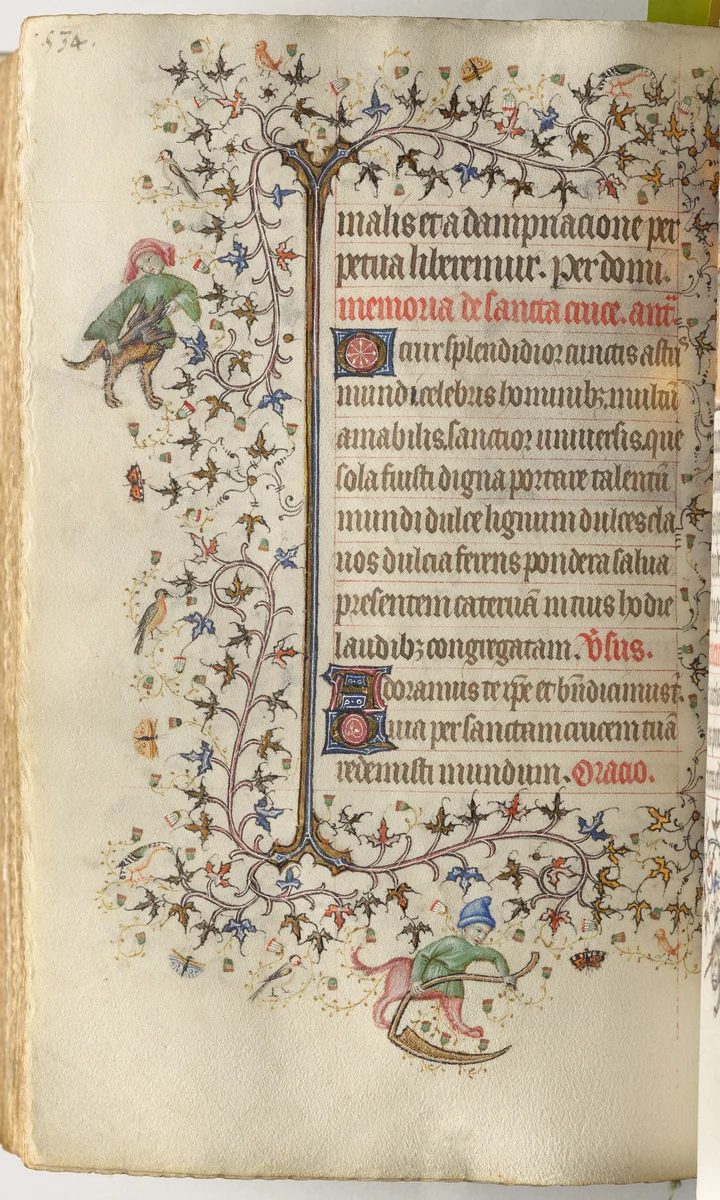 534.
malis et a dampnacione per
petua liberemur. Per domi.
memoria de sancta cruce. antᵃ
O crux splendidior cunctis astrꝭ
mundi celebris hominibꝫ multū
amabilis. sanctior uniuersis. que
sola fuisti digna portare talentū
mundi dulce lignum dulces cla
uos dulcia ferens pondera salua
presentem cateruā in tuis hodie
laudibꝫ congregatam. v̄sus.
Adoramus te xp̄e et bn̄dicimus t̄.
Quia per sanctam crucem tuā
redemisti mundum. Oracio.